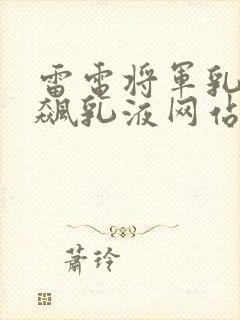 雷电将军乳
飙乳液网站
萧玲